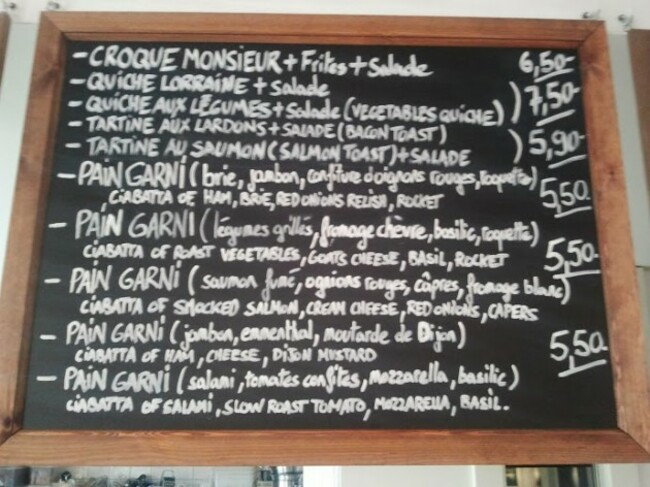 - CROQUE MONSIEUR + Frites + Salade 6,50-
- QUICHE LORRAINE + Salade
- QUICHE AUX LÉGUMES + Salade (VEGETABLES QUICHE) ) 7,50-
- TARTINE AUX LARDONS + SALADE (BACON TOAST)
- TARTINE AU SAUMON (SALMON TOAST) + SALADE ) 5,90-
- PAIN GARNI (brie, jambon, confiture d'oignons rouges, roquette)
CIABATTA OF HAM, BRIE, RED ONIONS RELISH, ROCKET 5,50
- PAIN GARNI (légumes grillés, fromage chèvre, basilic, roquette)
CIABATTA OF ROAST VEGETABLES, GOATS CHEESE, BASIL, ROCKET 5,50-
- PAIN GARNI (saumon fumé, oignions rouges, câpres, fromage blanc)
CIABATTA OF SMOCKED SALMON, CREAM CHEESE, RED ONIONS, CAPERS
- PAIN GARNI (jambon, emmenthal, moutarde de Dijon)
CIABATTA OF HAM, CHEESE, DIJON MUSTARD 5,50-
- PAIN GARNI (salami, tomates confites, mozzarella, basilic)
CIABATTA OF SALAMI, SLOW ROAST TOMATO, MOZZARELLA, BASIL.